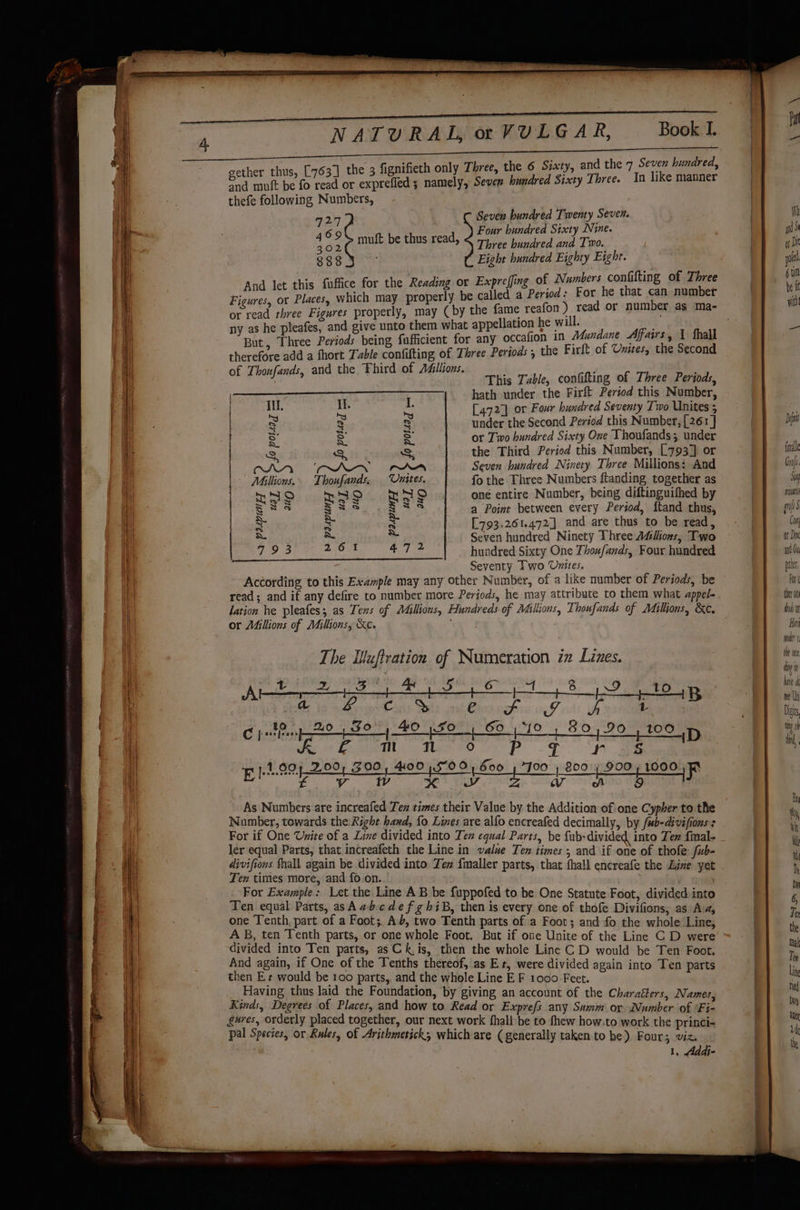 4 NATURAL, or VULGAR, Book I.
gether thus, [763] the 3 ſignifieth only Three, the 6 Sixty, and the 7 Seven hundred,
and muſt be ſo read or expreſſed; namely, Seven hundred Sixty Three. In like manner
theſe following Numbers,
727 Seven hundred Twenty Seven.
469 Four hundred Sixty Nine.
muſt be thus read,
302 Three hundred and Two.
888 Eight hundred Eighty Eight.
And let this ſuffice for the Reading or Expreſſing of Numbers conſiſting of Three
Figures, or Places, which may properly be called a Period: For he that can number
or read three Figures properly, may (by the ſame reaſon) read or number as ma-
ny as he pleaſes, and give unto them what appellation he will.
But, Three Periods being ſufficient for any occaſion in Mundane Affairs, I ſhall
therefore add a ſhort Table conſiſting of Three Periods; the Firſt of Unites, the Second
of Thouſands, and the Third of Millions.
III. II. I.
Period of Period of Period of
Millions. Thouſands. Unites.
One One One
Ten Ten Ten
Hundred Hundred Hundred
793 261 472
This Table, conſiſting of Three Periods,
hath under the Firſt Period this Number,
[472] or Four hundred Seventy Two Unites;
under the Second Period this Number, [261]
or Two hundred Sixty One Thouſands; under
the Third Period this Number, [793] or
Seven hundred Ninety Three Millions: And
ſo the Three Numbers ſtanding together as
one entire Number, being diſtinguiſhed by
a Point between every Period, ſtand thus,
[793.261.472] and are thus to be read,
Seven hundred Ninety Three Millions, Two
hundred Sixty One Thouſands, Four hundred
Seventy Two Unites.
According to this Example may any other Number, of a like number of Periods, be
read; and if any deſire to number more Periods, he may attribute to them what appel-
lation he pleaſes; as Tens of Millions, Hundreds of Millions, Thouſands of Millions, &c.
or Millions of Millions, &c.
The Illuſtration of Numeration in Lines.
A 1 2 3 4 5 6 7 8 9 10 B
a b c d e f g h i
C 10 20 30 40 50 60 70 80 90 100 D
k l m n o p q r s
E 100 200 300 400 500 600 700 800 900 1000 F
t v w x y z
As Numbers are increaſed Ten times their Value by the Addition of one Cypher to the
Number, towards the Right hand, ſo Lines are alſo encreaſed decimally, by ſub-diviſions:
For if One Unite of a Line divided into Ten equal Parts, be ſub-divided into Ten ſmal-
ler equal Parts, that increaſeth the Line in value Ten times; and if one of thoſe ſub-
diviſions ſhall again be divided into Ten ſmaller parts, that ſhall encreaſe the Line yet
Ten times more, and ſo on.
For Example: Let the Line A B be ſuppoſed to be One Statute Foot, divided into
Ten equal Parts, as A a b c d e f g h i B, then is every one of thoſe Diviſions, as A a,
one Tenth part of a Foot; A b, two Tenth parts of a Foot; and ſo the whole Line,
A B, ten Tenth parts, or one whole Foot. But if one Unite of the Line C D were
divided into Ten parts, as C k is, then the whole Line C D would be Ten Foot.
And again, if One of the Tenths thereof, as E t, were divided again into Ten parts
then E t would be 100 parts, and the whole Line E F 1000 Feet.
Having thus laid the Foundation, by giving an account of the Characters, Names,
Kinds, Degrees of Places, and how to Read or Expreſs any Summ or Number of Fi-
gures, orderly placed together, our next work ſhall be to ſhew how to work the princi-
pal Species, or Rules, of Arithmetick; which are (generally taken to be) Four; viz.
1. Addi-